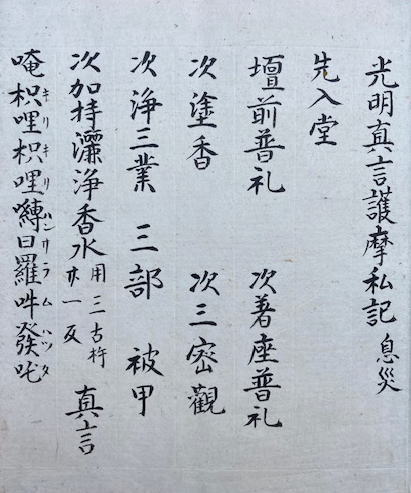 光明真言護摩私記 息災
先入堂
壇前普礼 次著座普礼
次塗香 次三密觀
次浄三業 三部 被甲
次加持灑浄香水 用三古杵 廿一反 真言
唵枳哩枳哩嚩日羅吽發吒
キリキリハサラムハツタ